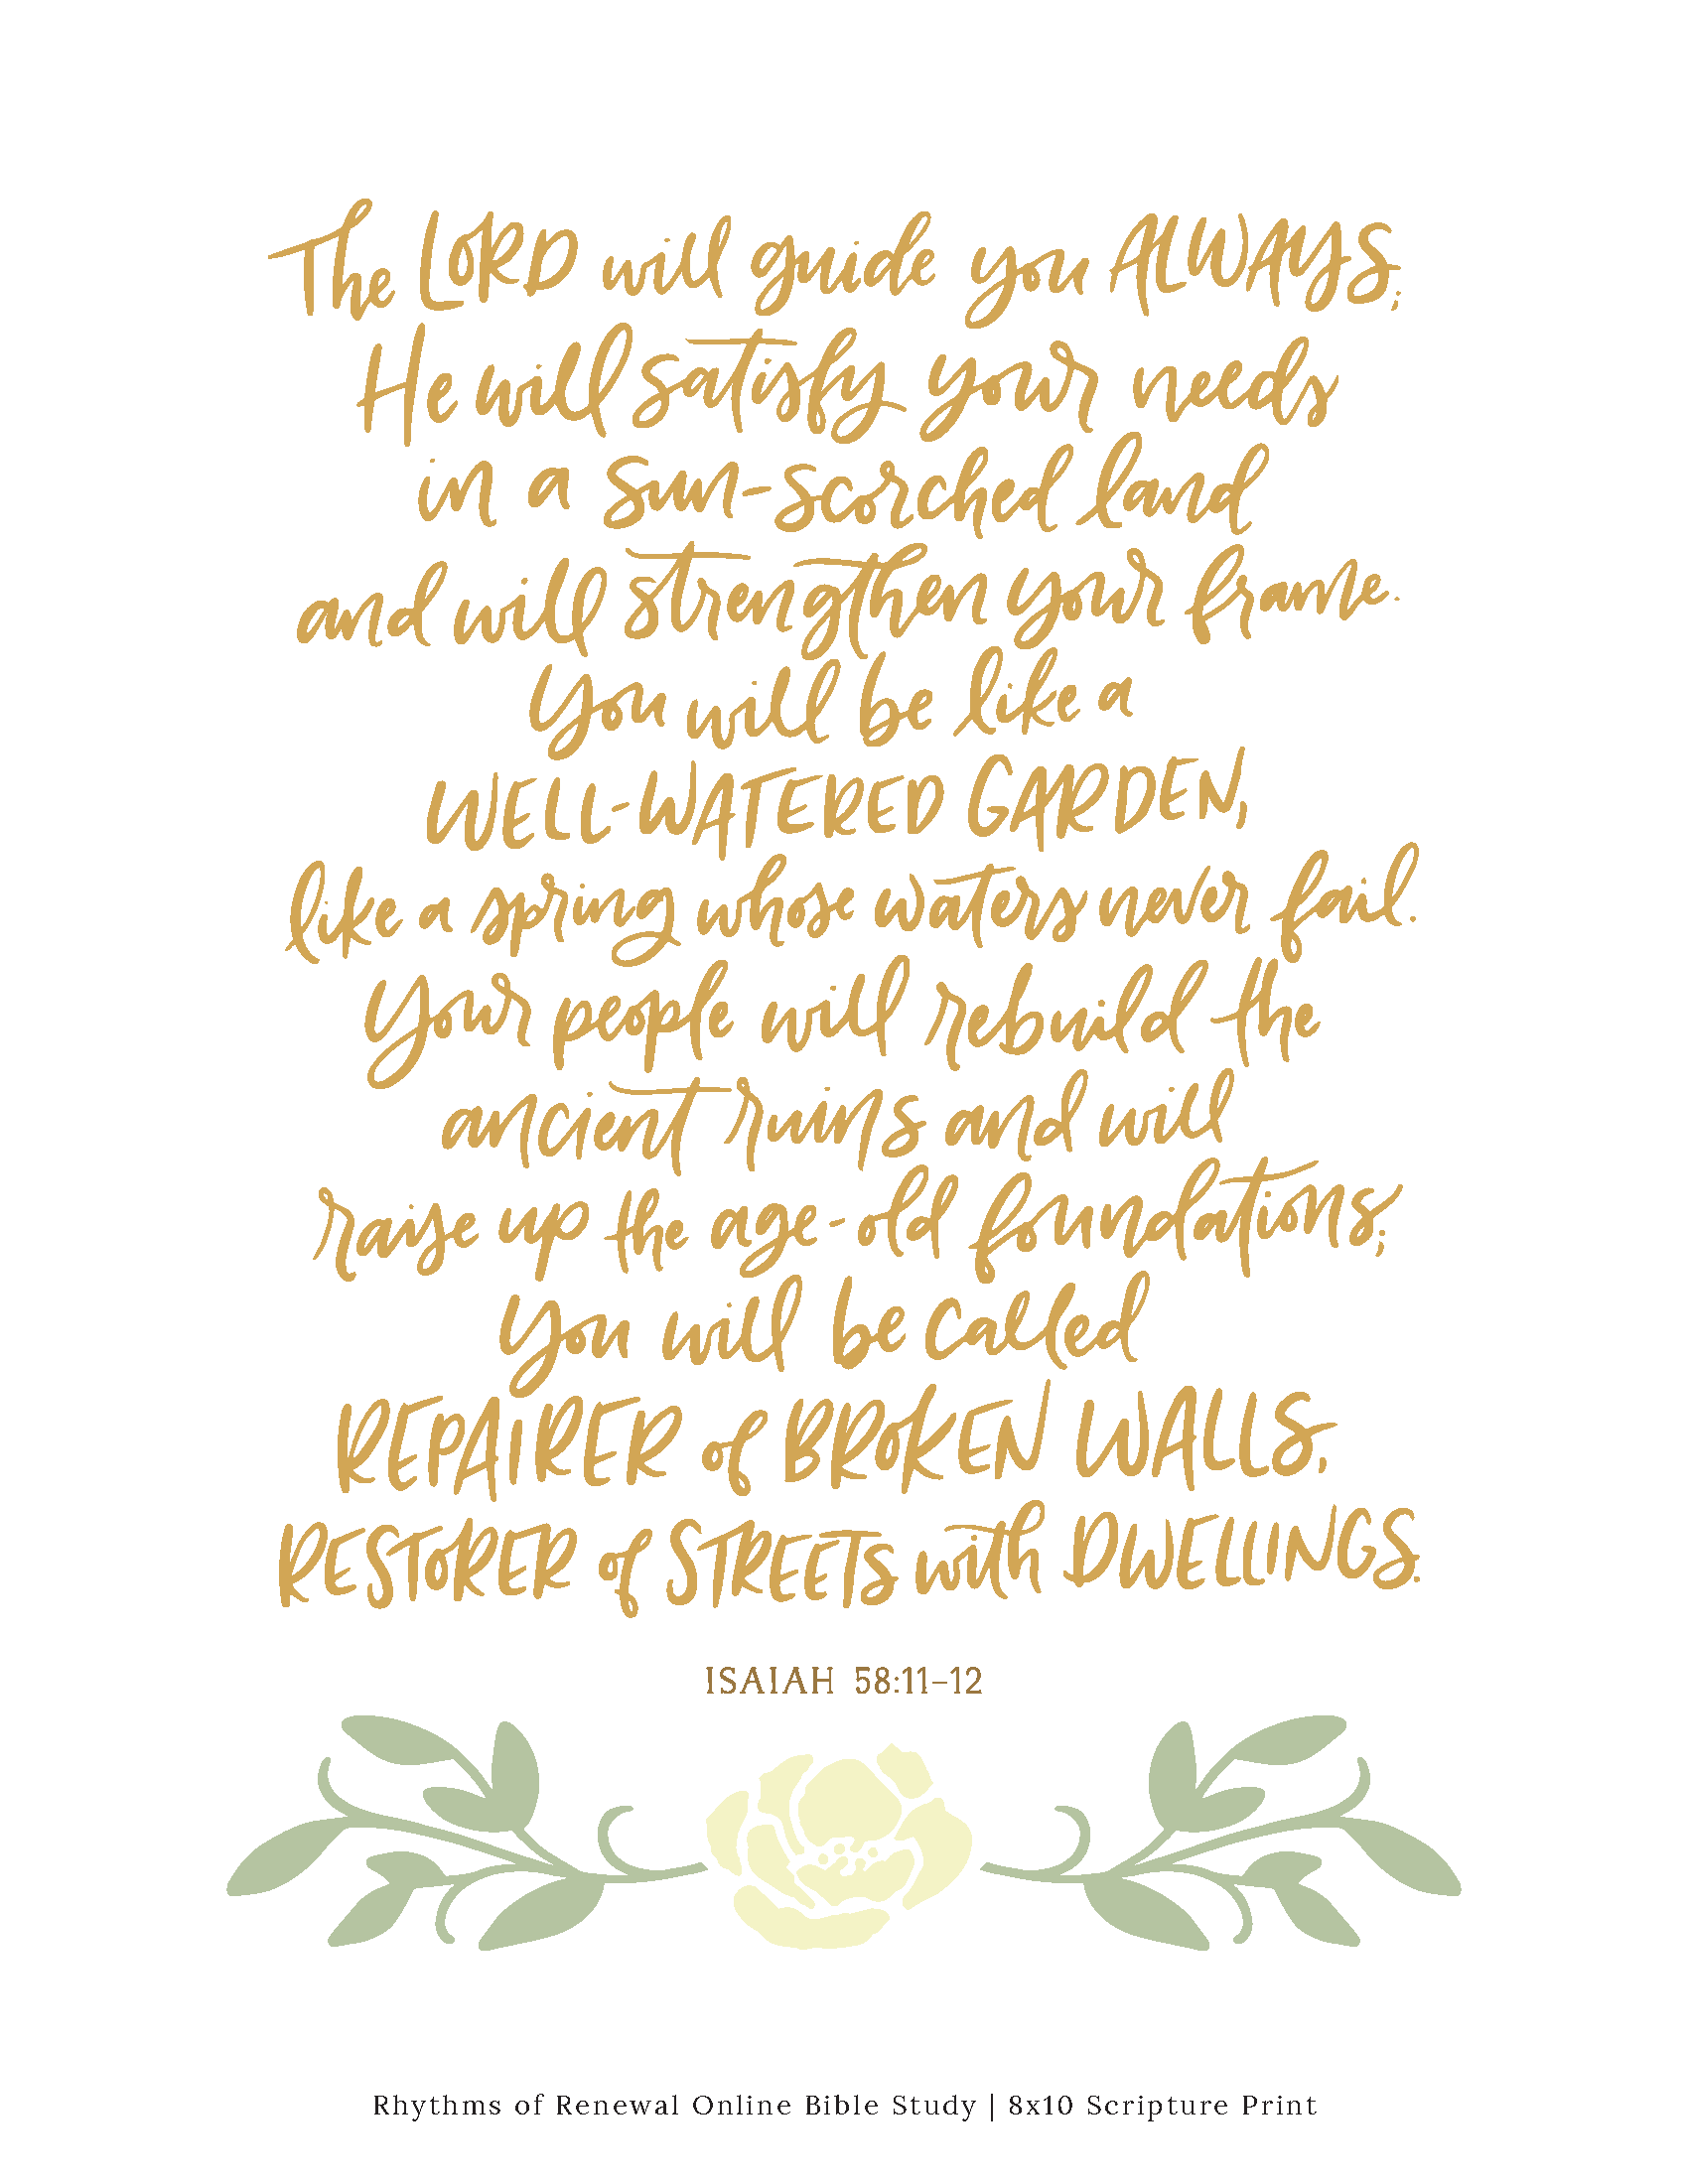 The LORD will guide you ALWAYS;
He will satisfy your needs
in a sun-scorched land
and will strengthen your frame.
You will be like a
WELL-WATERED GARDEN,
like a spring whose waters never fail.
Your people will rebuild the
ancient ruins and will
raise up the age-old foundations;
You will be called
REPAIRER of BROKEN WALLS,
RESTORER of STREETS with DWELLINGS.
ISAIAH 58:11–12
Rhythms of Renewal Online Bible Study | 8x10 Scripture Print